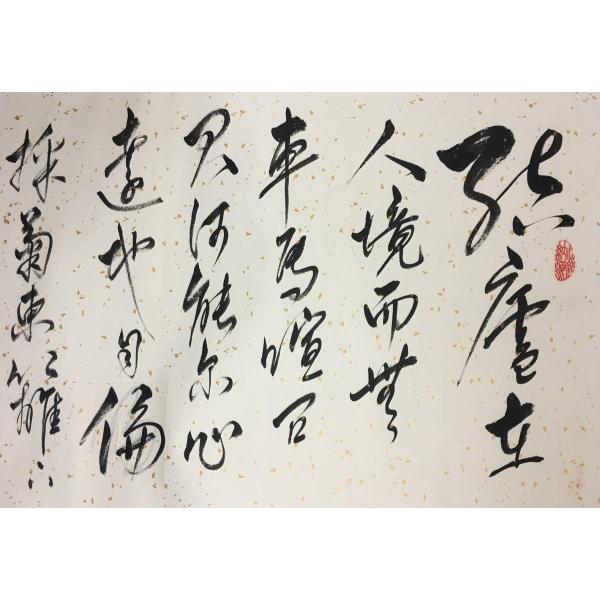 結廬在
人境而無
車馬喧问
君何能尔心
遠地自偏
採菊東籬下